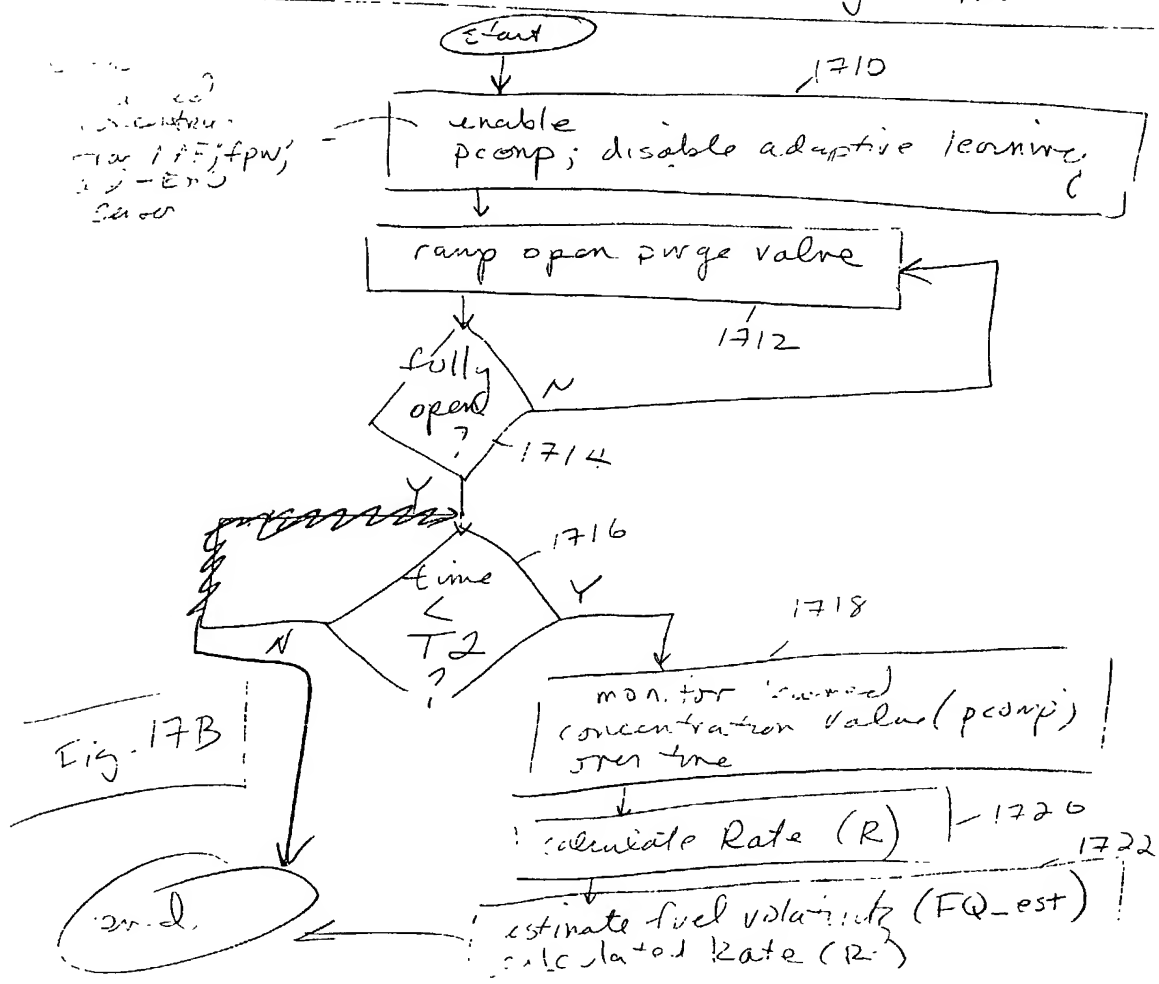 start
1710
enable
pcomp; disable adaptive learning
ramp open purge valve
1712
fully
open
?
N
1714
Y
1716
time
<
T2
?
Y
N
1718
monitor
concentration value (pcomp)
over time
Fig. 17B
calculate Rate (R)
1720
1722
estimate fuel volatility (FQ_est)
calculated Rate (R)
end